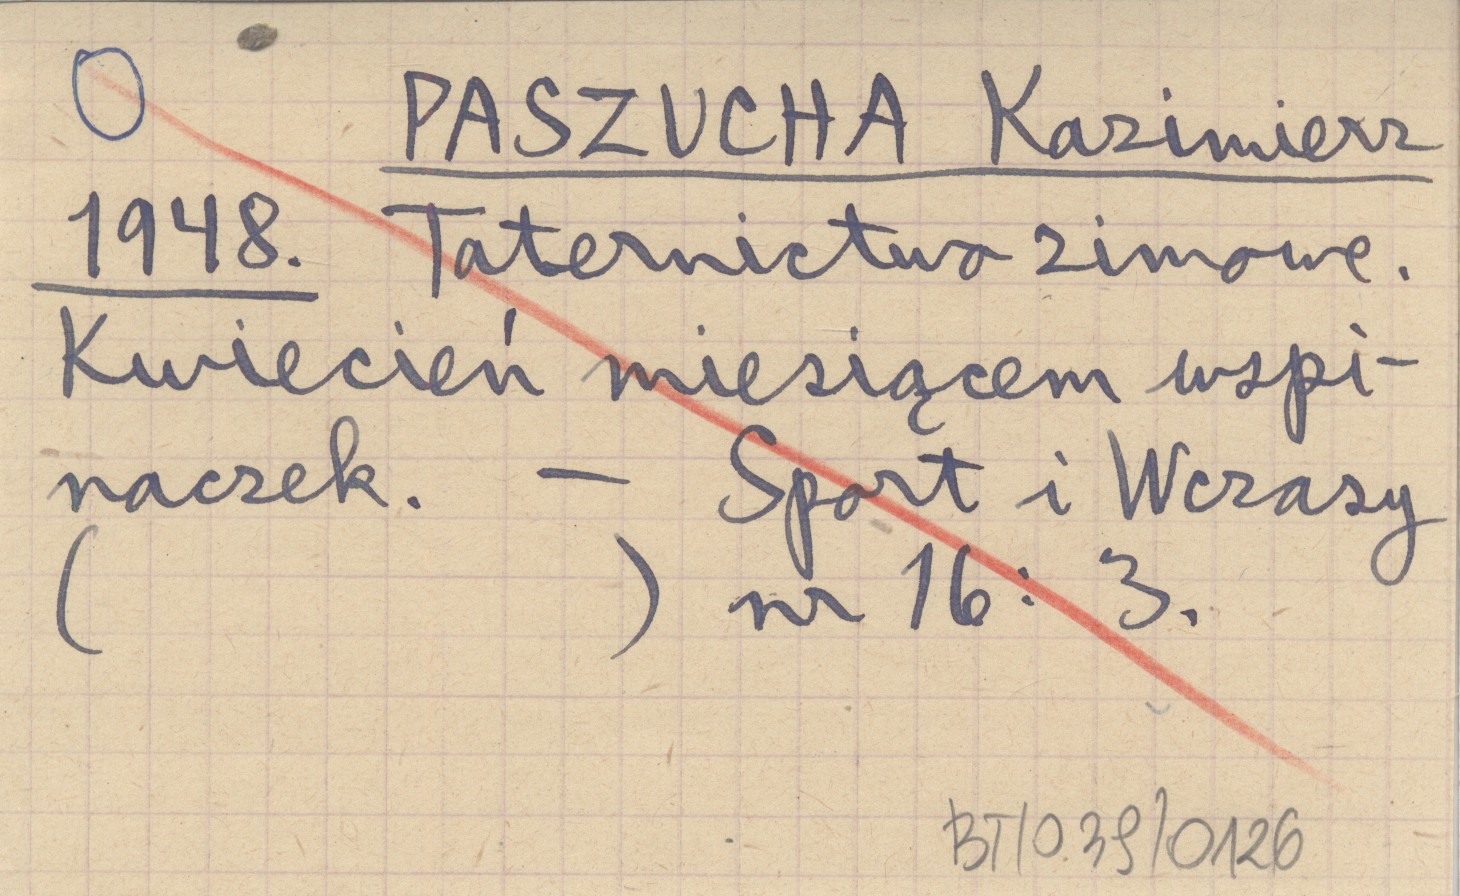 PASZUCHA Kazimierz
1948. Taternictwo zimowe.
Kwiecień miesiącem wspi-
naczek. — Sport i Wczasy
( ) nr 16: 3.
BT/039/0126